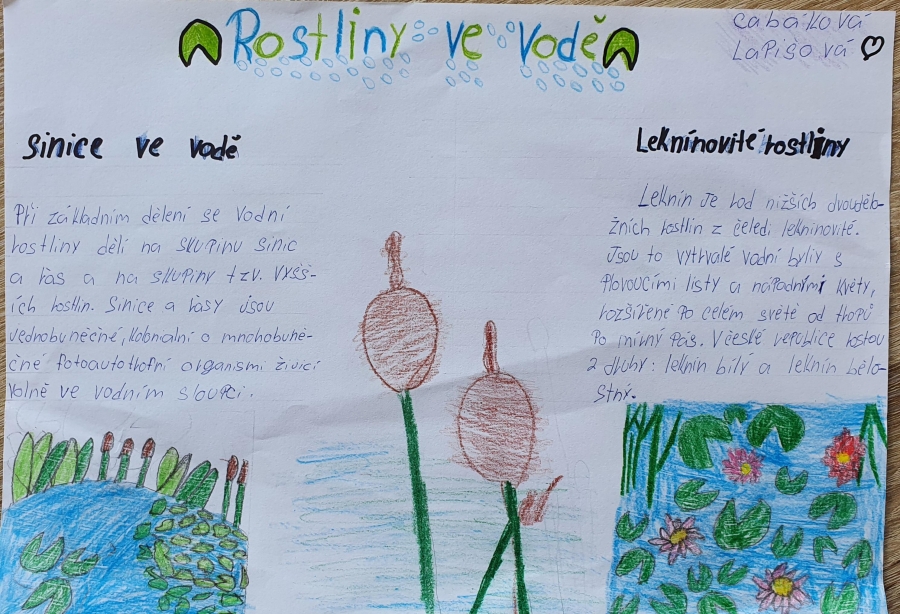 Rostliny ve vodě
Cabáková
Lapišová
Sinice ve vodě
Při základním dělení se vodní
rostliny dělí na skupinu sinic
a řas a na skupiny tzv. vyšš-
ích rostlin. Sinice a řasy jsou
jednobuněčné, koloniální a mnohobuně-
čné fotoautotrofní organismi živící
volně ve vodním sloupci.
Leknínovité rostliny
Leknín je rod nižších dvouděło-
žních rostlin z čeledi leknínovité.
Jsou to vytrvalé vodní byliy s
plovoucími listy a nápadnými květy,
rozšířené po celém světě od tropů
po mírný pás. V České republice rostou
2 druhy: leknín bílý a leknín bělo-
stný.